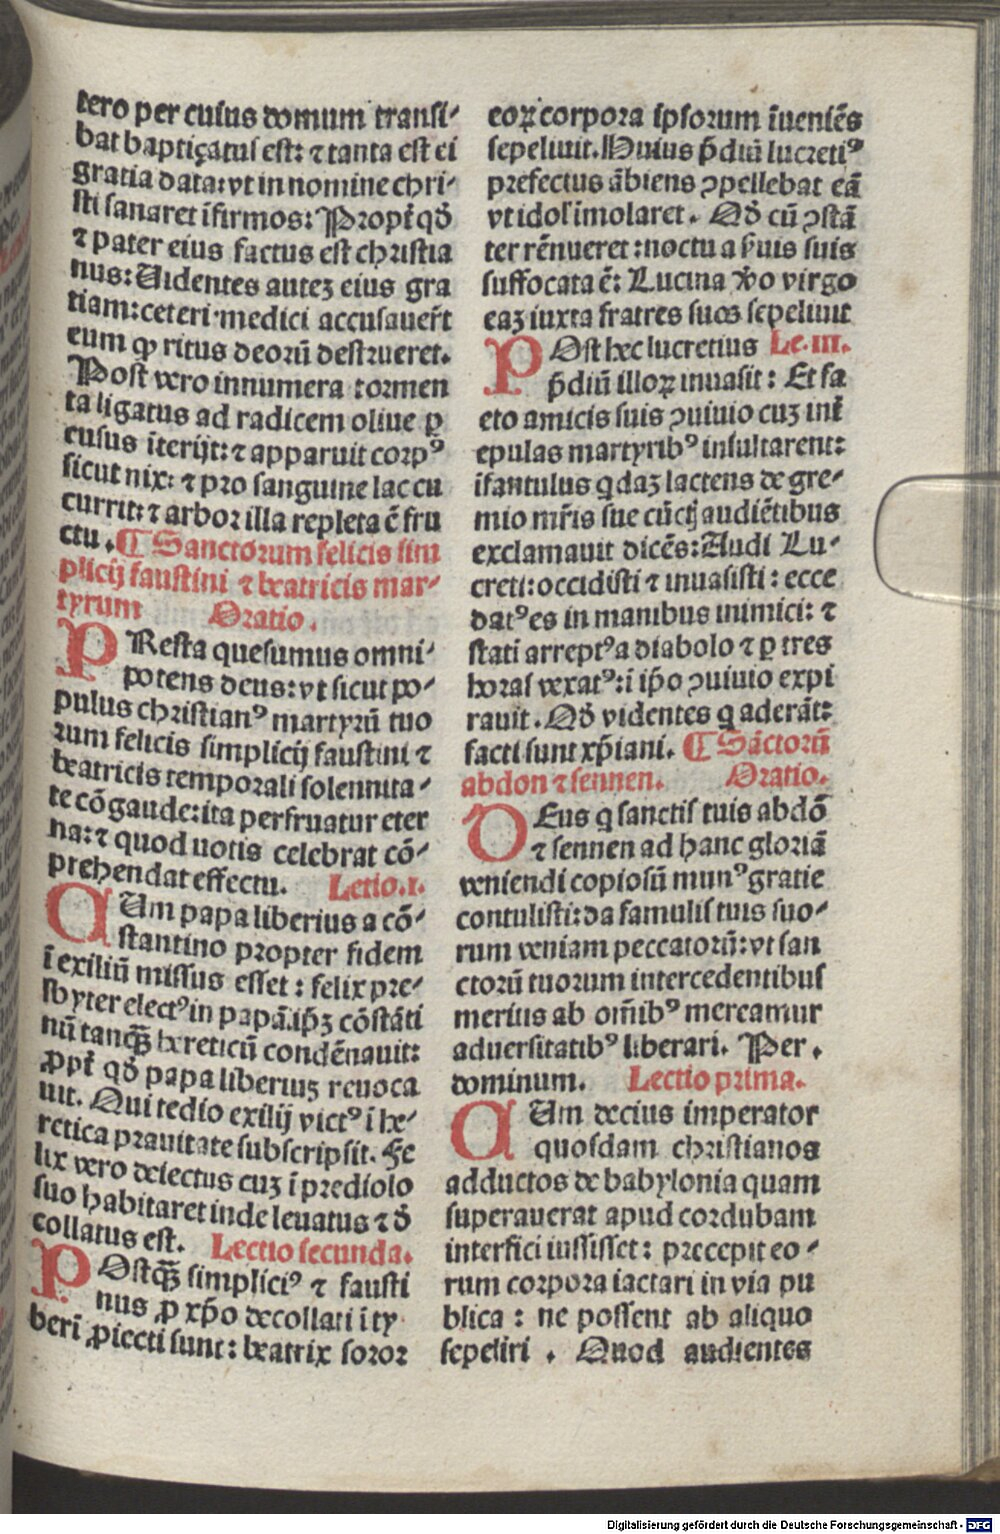 tero per cuius domum transi-
bat baptiçatus est: ⁊ tanta est ei
gratia data: vt in nomine chri-
sti sanaret ĩfirmos: Propt̃ qđ
⁊ pater eius factus est christia
nus: Uidentes auteʒ eius gra
tiam: ceteri medici accusauer̃t
eum ꝙ ritus deorũ destrueret.
Post vero innumera tormen
ta ligatus ad radicem oliue ꝑ
cusus ĩterijt: ⁊ apparuit corpꝰ
sicut nix: ⁊ pro sanguine lac cu
currit: ⁊ arbor illa repleta ẽ fru
ctu. ¶ Sanctorum felicis sim
plicij faustini ⁊ beatricis mar-
tyrum Oratio.
PResta quesumus omni-
potens deus: vt sicut po-
pulus christianꝰ martyrũ tuo
rum felicis simplicij faustini ⁊
beatricis temporali solennita-
te cõgaudet: ita perfruatur eter
na: ⁊ quod uotis celebrat cõ-
prehendat effectu. Letio.i.
CUm papa liberius a cõ-
stantino propter fidem
ĩ exiliũ missus esset: felix pre-
sbyter electꝰ in papã. ip̃ʒ cõstãti
nũ tanqꝫ̃ hereticũ condẽnauit:
ꝓpt̃ qđ papa liberiuʒ reuoca
uit. Qui tedio exilij victꝰ ĩ he-
retica prauitate subscripsit. Fe
lix vero delectus cuʒ ĩ prediolo
suo habitaret inde leuatus ⁊ đ
collatus est. Lectio secunda.
POstqꝫ̃ simpliciꝰ ⁊ fausti
nus ꝓ xp̃o decollati ĩ ty
berĩ ꝓiecti sunt: beatrix soror
eoꝝ corpora ipsorum ĩueniẽs
sepeliuit. Huius p̃diũ lucretiꝰ
prefectus ãbiens ꝯpellebat eã
vt idol' imolaret. Qđ cũ ꝯstã
ter rẽnueret: noctu a s̃uis suis
suffocata ẽ: Lucina v̊o virgo
eaʒ iuxta fratres suos sepeliuit
POst hec lucretius Le.iii.
p̃diũ illoꝝ inuasit: Et fa
cto amicis suis ꝯuiuio cuʒ int̃
epulas martyribꝰ insultarent:
ifantulus qdaʒ lactens de gre-
mio mr̃is sue cũctĳ audiẽtibus
exclamauit dicẽs: Audi Lu-
creti: occidisti ⁊ inuasisti: ecce
datꝰ es in manibus inimici: ⁊
stati arreptꝰ a diabolo ⁊ ꝑ tres
horas vexatꝰ: ĩ ip̃o ꝯuiuio expi
rauit. Qđ videntes q aderãt:
facti sunt xp̃iani. ¶ Sãctorũ
abdon ⁊ sennen. Oratio.
DEus q sanctis tuis abdõ
⁊ sennen ad hanc gloriã
veniendi copiosũ munꝰ gratie
contulisti: da famulis tuis suo-
rum veniam peccatorũ: vt san
ctorũ tuorum intercedentibus
meritus ab om̃ibꝰ mercamur
aduersitatibꝰ liberari. Per.
dominum. Lectio prima.
CUm decius imperator
quosdam christianos
adductos de babylonia quam
superauerat apud cordubam
interfici iussisset: precepit eo-
rum corpora iactari in via pu
blica: ne possent ab aliquo
sepeliri. Quod audientes
Digitalisierung gefördert durch die Deutsche Forschungsgemeinschaft - DFG